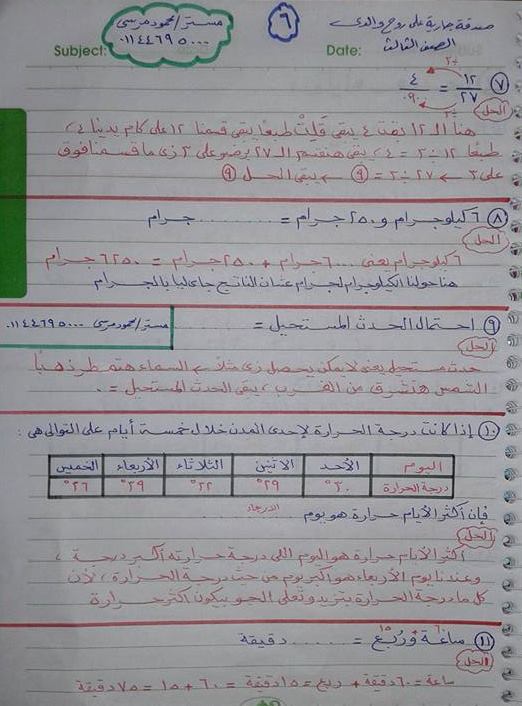 صدقة جارية على روح والدى
٦
مستر/محمود مرسى
٠١١٤٤٦٩٥٠٠٠
Subject:
Date:
الصف الثالث
٧ ١٢/٢٧ = ٤/٩
÷٣
÷٣
الحل
هنا الـ ١٢ بقت ٤ يبقى قلت طبعًا يبقى قسمنا ١٢ على كام يدينا ٤،
طبعًا ١٢ ÷ ٣ = ٤، يبقى هنقسم الـ ٢٧ برضو على ٣ زى ما قسمنا فوق
على ٣ ← ٢٧ ÷ ٣ = ٩ ← يبقى الحل ٩
٨ ٦ كيلوجرام و ٢٥٠ جرام = .......... جرام
الحل
٦ كيلوجرام يعنى ٦٠٠٠ جرام + ٢٥٠ جرام = ٦٢٥٠ جرام
هنا حولنا الكيلوجرام لجرام عشان الناتج جاى ليا بالجرام
٩ احتمال الحدث المستحيل =
مستر/محمود مرسى ٠١١٤٤٦٩٥٠٠٠
الحل
حدث مستحيل يعنى لا يمكن يحصل زى مثلًا السماء هتمطر ذهبًا
الشمس هتشرق من الغرب، يبقى الحدث المستحيل = ٠
١٠ إذا كانت درجة الحرارة لإحدى المدن خلال خمسة أيام على التوالى هى:
اليوم الأحد الاثنين الثلاثاء الأربعاء الخميس
درجة الحرارة ٢٠° ٢٩° ٢٢° ٣٩° ٢٦°
فإن أكثر الأيام حرارة هو يوم الأربعاء
الحل
أكثر الأيام حرارة هو اليوم اللى درجة حرارته أكبر درجة،
وعندنا يوم الأربعاء هو أكبر يوم من حيث درجة الحرارة، لأن
كل ما درجة الحرارة بتزيد وتعلى الجو بيكون أكثر حرارة
١١ ساعة وربع = .......... دقيقة
٦٠ + ١٥
الحل
ساعة = ٦٠ دقيقة + ربع = ١٥ دقيقة = ٦٠ + ١٥ = ٧٥ دقيقة